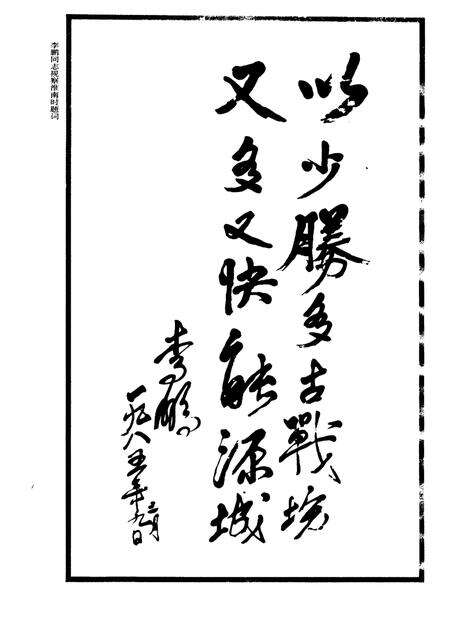 以少勝多古戰场
又多又快能源城
李鹏
一九八五年十二月九日
李鹏同志视察淮南时题词